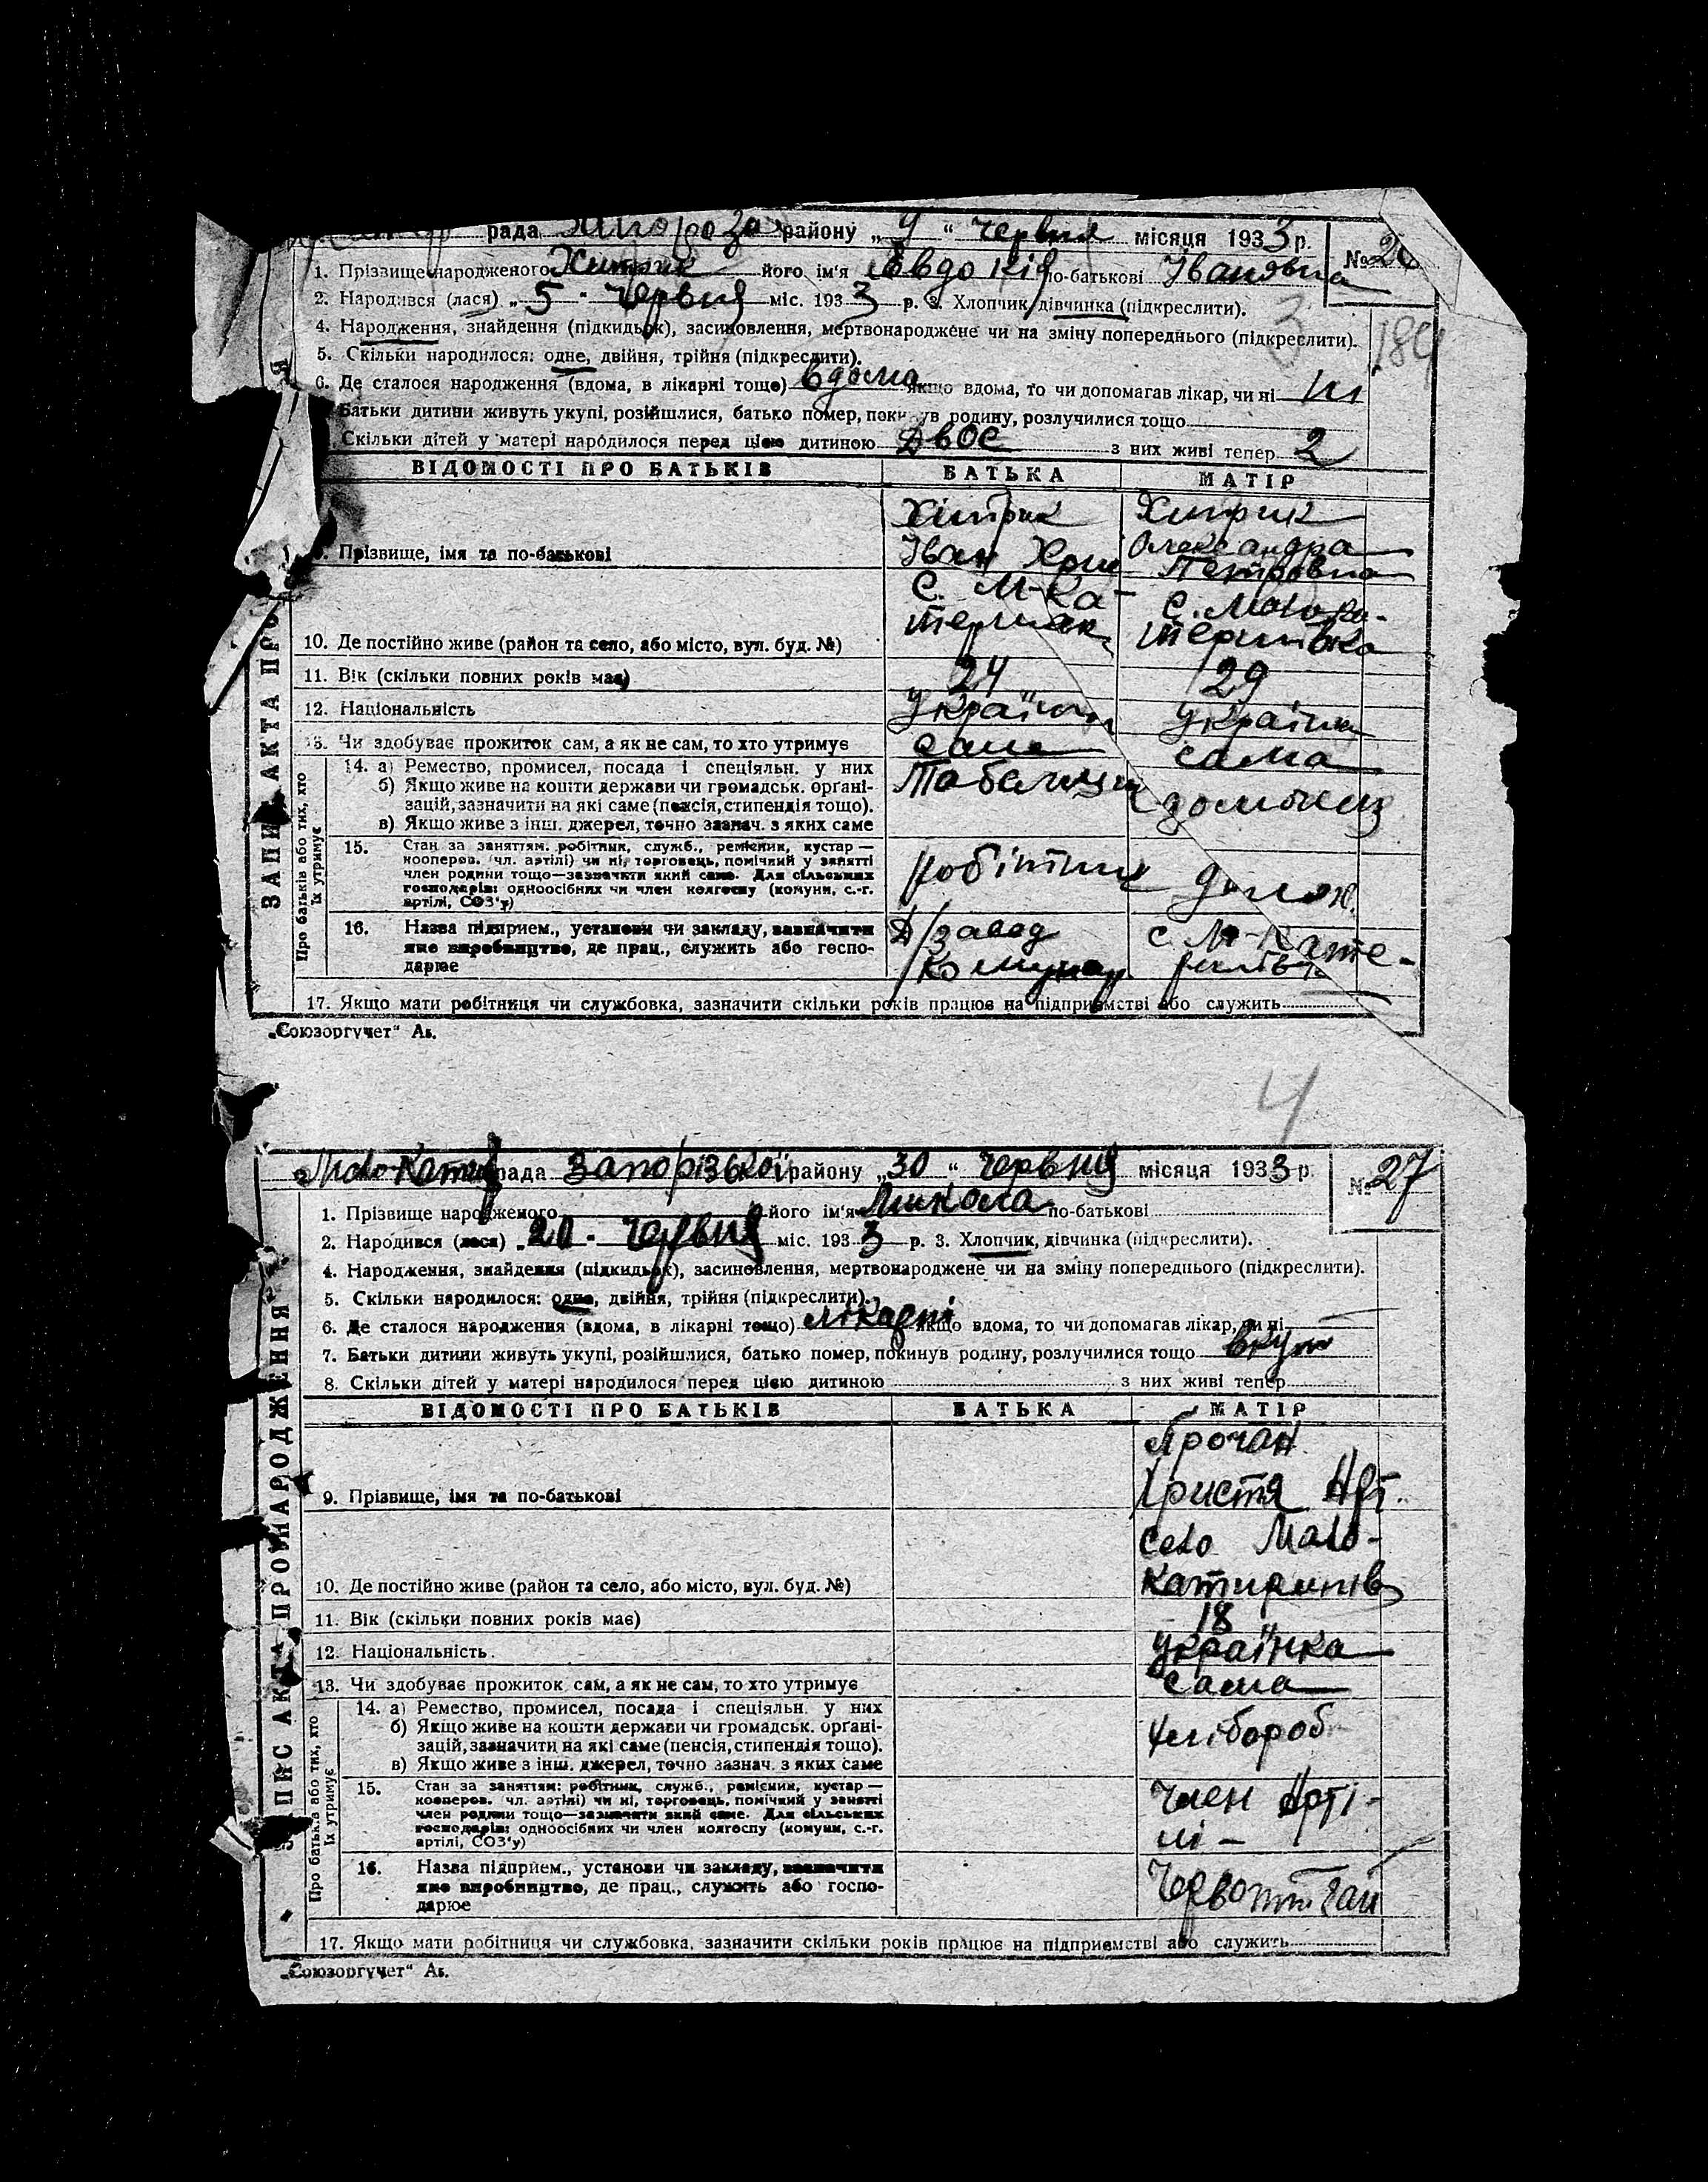 рада Запороз району „9“ червня місяця 1933 р.
№ 26
1. Прізвище народженого Хитрик його ім'я Євдокія по-батькові Івановна
2. Народився (лася) „5“ червня міс. 1933 р. 3. Хлопчик, дівчинка (підкреслити).
3
4. Народження, знайдення (підкидьок), засиновлення, мертвонароджене чи на зміну попереднього (підкреслити).
184
5. Скільки народилося: одне, двійня, трійня (підкреслити).
6. Де сталося народження (вдома, в лікарні тощо) вдома якщо вдома, то чи допомагав лікар, чи ні ні
Батьки дитини живуть укупі, розійшлися, батько помер, покинув родину, розлучилися тощо
Скільки дітей у матері народилося перед цією дитиною двоє з них живі тепер 2
ВІДОМОСТІ ПРО БАТЬКІВ БАТЬКА МАТІР
Прізвище, імя та по-батькові
Хитрик
Іван
Хитрик
Олександра
Петровна
10. Де постійно живе (район та село, або місто, вул. буд. №)
С. М-Ка-
с. Мало-Ка-
теринівка
11. Вік (скільки повних років має) 24 29
12. Національність україн україн
13. Чи здобуває прожиток сам, а як не сам, то хто утримує сам сама
14. а) Ремество, промисел, посада і спеціяльн. у них
б) Якщо живе на кошти держави чи громадськ. органі-
зацій, зазначити на які саме (пенсія, стипендія тощо).
в) Якщо живе з інш. джерел, точно зазнач. з яких саме
Табельщик
15. Стан за заняттям: робітник, служб., ремісник, кустар —
кооперов. (чл. артілі) чи ні, торговець, помічний у занятті
член родини тощо—зазначити який саме. Для сільських
господарів: одноосібних чи член колгоспу (комуни, с.-г.
артілі, СОЗ'у)
робітник
16. Назва підприєм., установи чи закладу, зазначити
яке виробництво, де прац., служить або госпо-
дарює
Д/завод
Комунар
с. М-Кате-
17. Якщо мати робітниця чи службовка, зазначити скільки років працює на підприємстві або служить
„Союзоргучет“ Ак.
ЗАПИС АКТА ПРО
Про батьків або тих, хто
їх утримує
4
Мало-Катер рада Запорізької району „30“ червня місяця 1933 р.
№ 27
1. Прізвище народженого його ім'я Микола по-батькові
2. Народився (лася) „20“ червня міс. 1933 р. 3. Хлопчик, дівчинка (підкреслити).
4. Народження, знайдення (підкидьок), засиновлення, мертвонароджене чи на зміну попереднього (підкреслити).
5. Скільки народилося: одне, двійня, трійня (підкреслити).
6. Де сталося народження (вдома, в лікарні тощо) лікарні якщо вдома, то чи допомагав лікар, чи ні
7. Батьки дитини живуть укупі, розійшлися, батько помер, покинув родину, розлучилися тощо вкупі
8. Скільки дітей у матері народилося перед цією дитиною з них живі тепер
ВІДОМОСТІ ПРО БАТЬКІВ БАТЬКА МАТІР
9. Прізвище, імя та по-батькові
Ярочан
Христя Арт.
10. Де постійно живе (район та село, або місто, вул. буд. №)
село Мало-
Катиринів
11. Вік (скільки повних років має) 18
12. Національність. українка
13. Чи здобуває прожиток сам, а як не сам, то хто утримує сама
14. а) Ремество, промисел, посада і спеціяльн. у них
б) Якщо живе на кошти держави чи громадськ. органі-
зацій, зазначити на які саме (пенсія, стипендія тощо).
в) Якщо живе з інш. джерел, точно зазнач. з яких саме
хлібороб
15. Стан за заняттям: робітник, служб., ремісник, кустар —
кооперов. (чл. артілі) чи ні, торговець, помічний у занятті
член родини тощо—зазначити який саме. Для сільських
господарів: одноосібних чи член колгоспу (комуни, с.-г.
артілі, СОЗ'у)
член Арті-
лі -
16. Назва підприєм., установи чи закладу, зазначити
яке виробництво, де прац., служить або госпо-
дарює
17. Якщо мати робітниця чи службовка, зазначити скільки років працює на підприємстві або служить
„Союзоргучет“ Ак.
ЗАПИС АКТА ПРО НАРОДЖЕННЯ
Про батьків або тих, хто
їх утримує